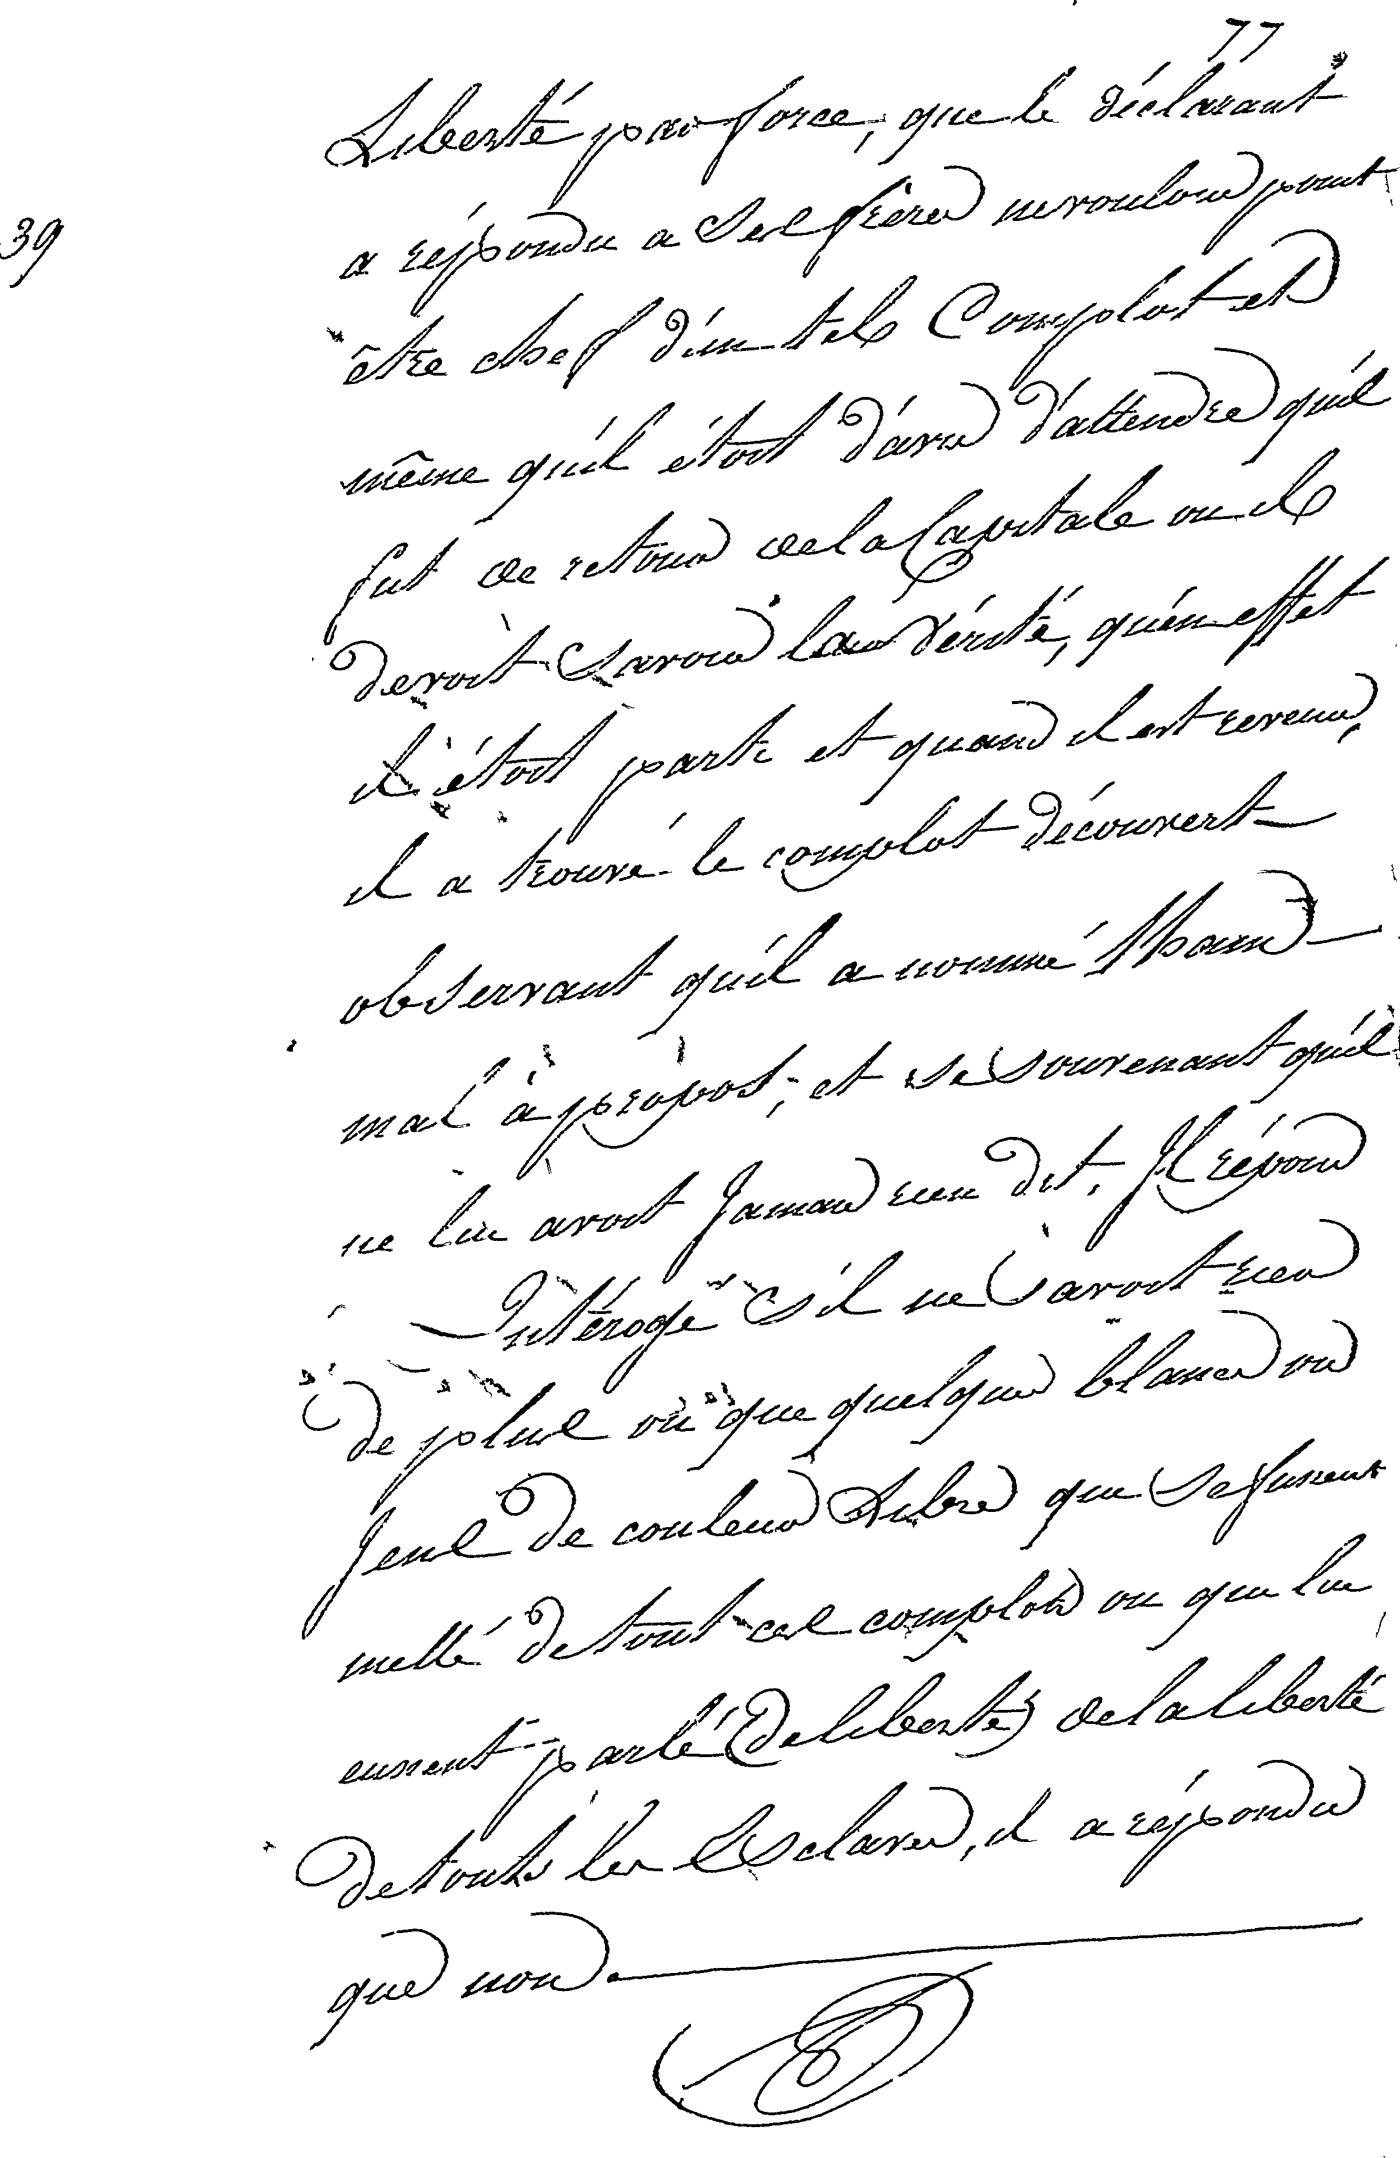 77
Liberté par force, que le déclarant
39
a répondu a ses frères ne vouloir point
être chef d'un tel Complot et
même qu'il étoit d'avis d'attendre qu'il
fut de retour de la Capitale ou il
devoit Savoir la Vérité, qu'en effet
il étoit parti et quand il est revenu,
il a trouvé le complot découvert
observant qu'il a nommé
mal à propos, et se souvenant qu'il
ne lui avoit Jamais rien dit. Il répond
Intérogé S'il ne Savoit rien
de plus ou que quelques blancs ou
Jens de couleur Libre que se fussent
mellé de tout ces complots ou qui lui
eussent parlé (de liberté) de la liberté
de touts les Esclaves, il a répondu
que non.